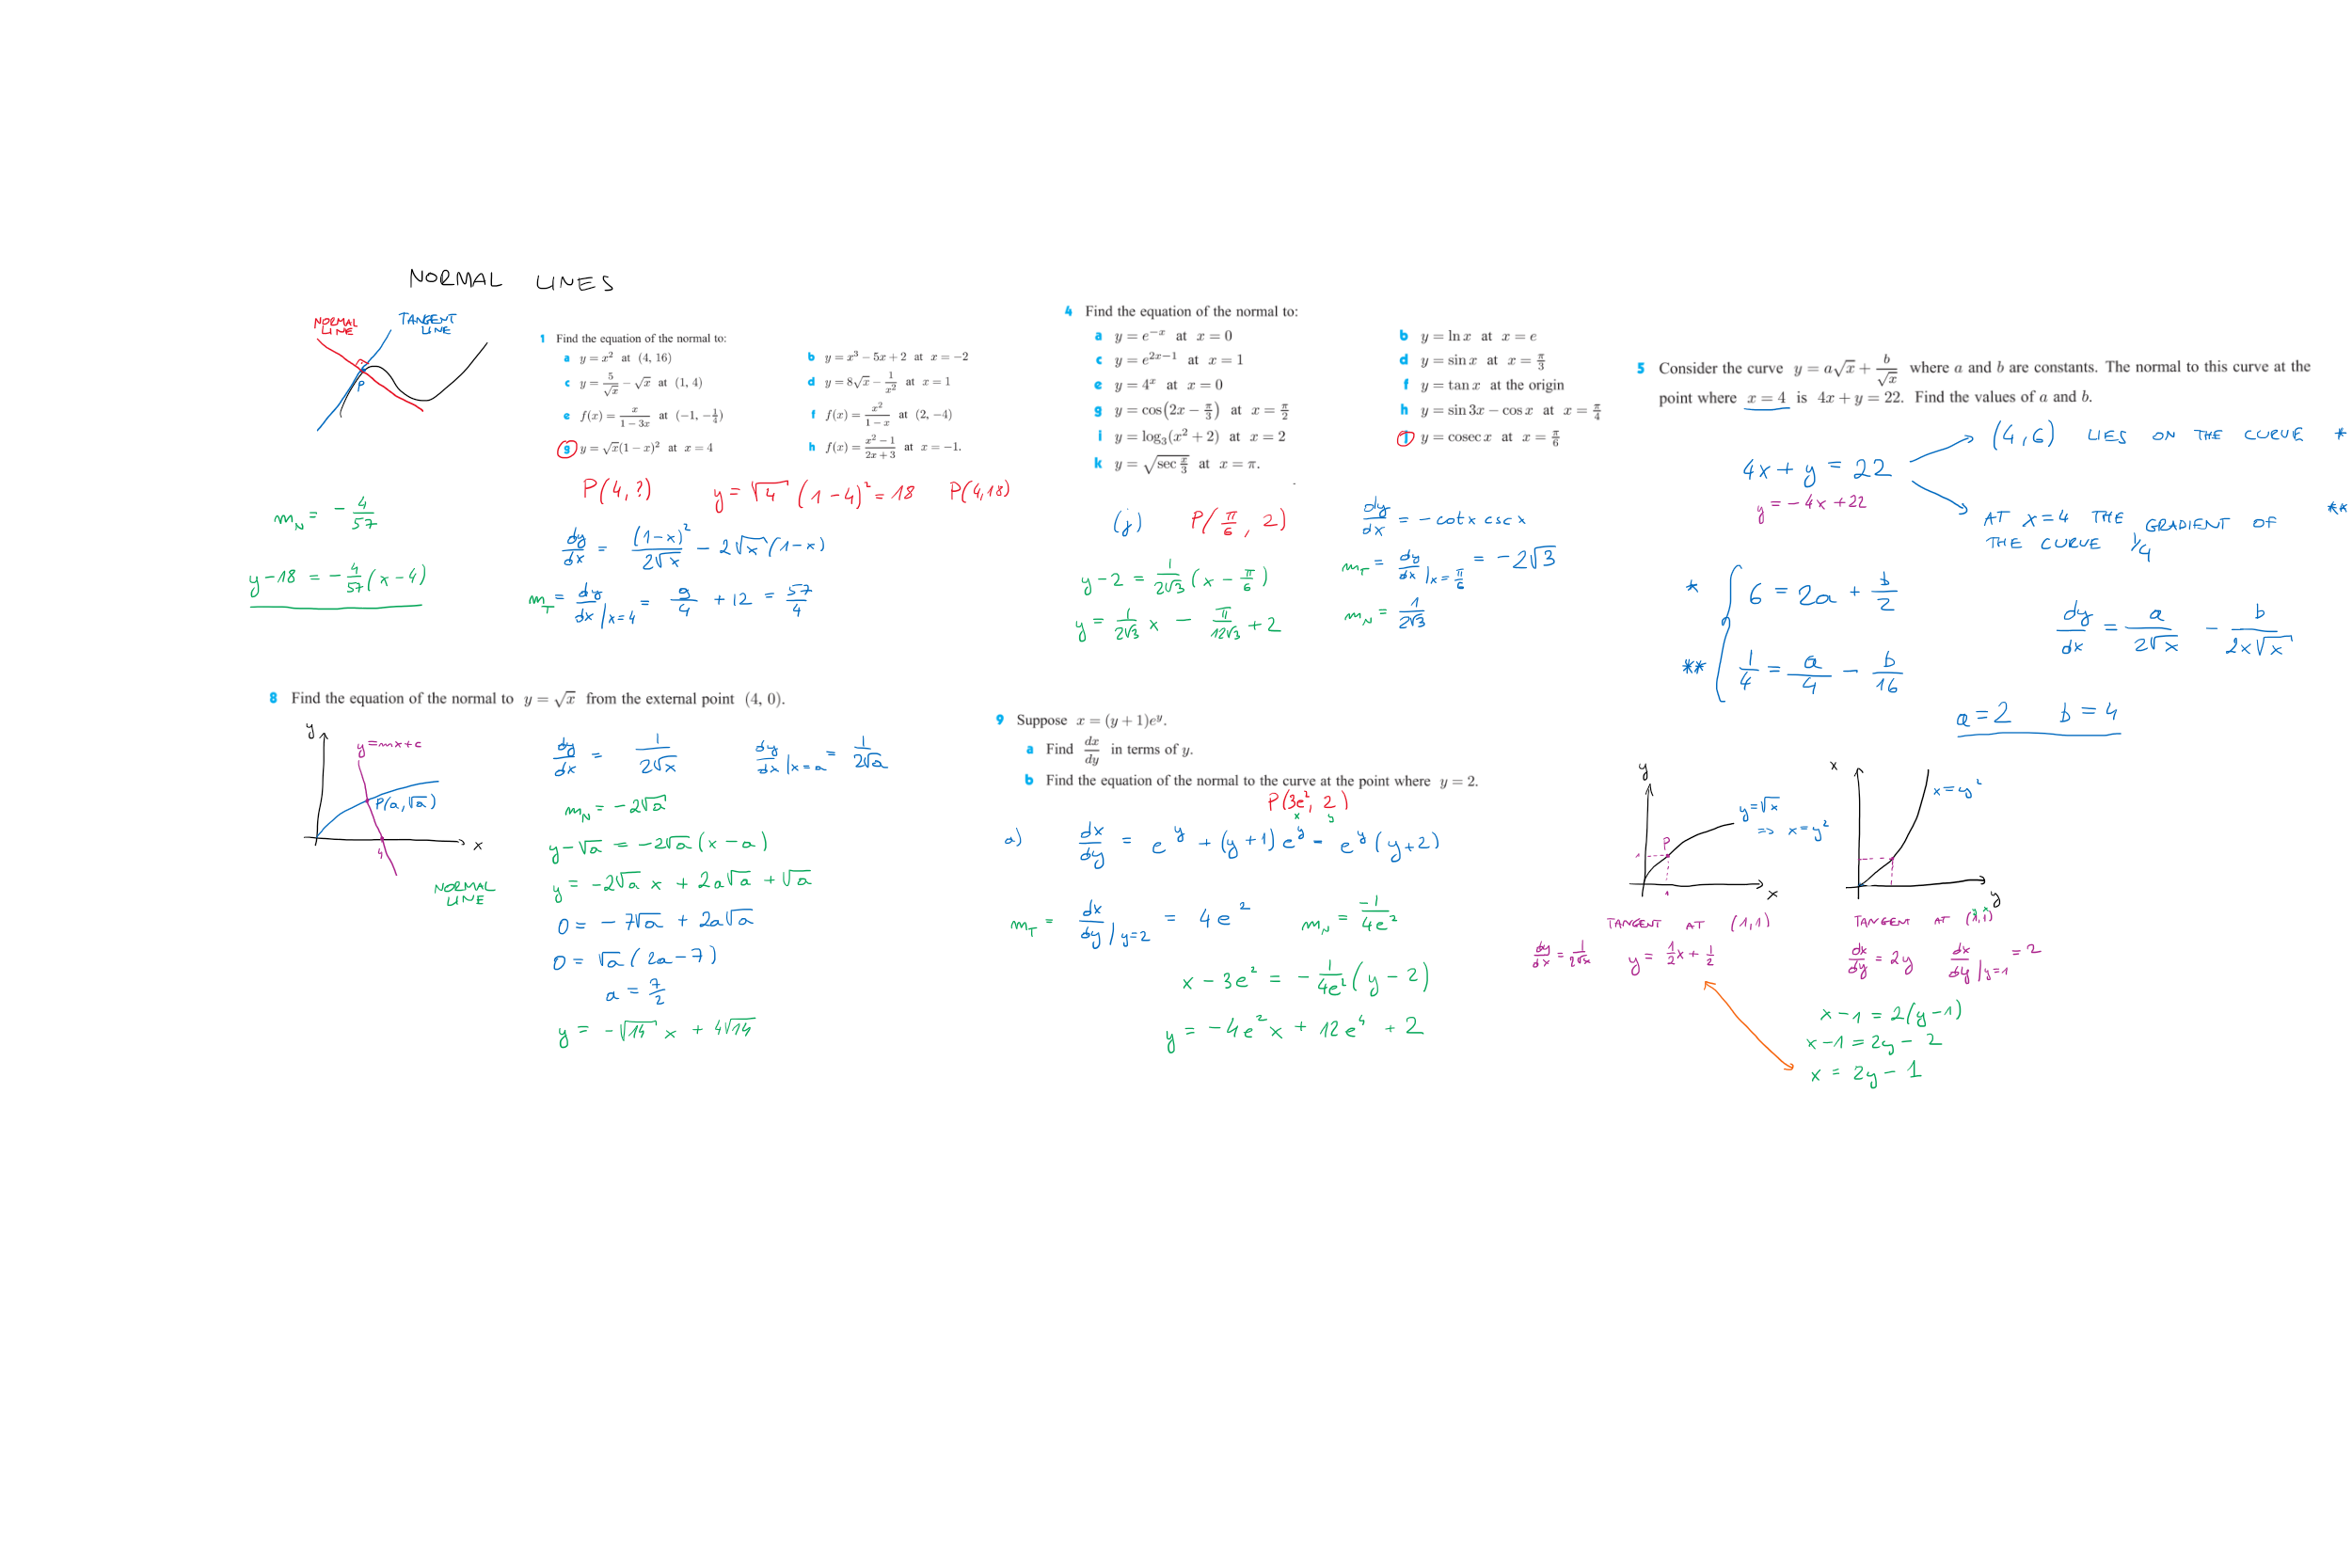 NORMAL LINES
NORMAL LINE
TANGENT LINE
P
1 Find the equation of the normal to:
a y = x² at (4, 16)
b y = x³ − 5x + 2 at x = −2
c y = 5/√x − √x at (1, 4)
d y = 8√x − 1/x² at x = 1
e f(x) = x/(1 − 3x) at (−1, −1/4)
f f(x) = x²/(1 − x) at (2, −4)
g y = √x(1 − x)² at x = 4
h f(x) = (x² − 1)/(2x + 3) at x = −1.
P(4, ?) y = √4 (1 − 4)² = 18 P(4,18)
dy/dx = (1−x)²/(2√x) − 2√x (1−x)
m_T = dy/dx |x=4 = 9/4 + 12 = 57/4
m_N = − 4/57
y−18 = − 4/57 (x − 4)
4 Find the equation of the normal to:
a y = e^(−x) at x = 0
b y = ln x at x = e
c y = e^(2x−1) at x = 1
d y = sin x at x = π/3
e y = 4^x at x = 0
f y = tan x at the origin
g y = cos(2x − π/3) at x = π/2
h y = sin 3x − cos x at x = π/4
i y = log₃(x² + 2) at x = 2
j y = cosec x at x = π/6
k y = √(sec x/3) at x = π.
(j) P(π/6, 2)
dy/dx = − cotx cscx
m_T = dy/dx |x=π/6 = −2√3
m_N = 1/(2√3)
y−2 = 1/(2√3) (x − π/6)
y = 1/(2√3) x − π/(12√3) + 2
5 Consider the curve y = a√x + b/√x where a and b are constants. The normal to this curve at the
point where x = 4 is 4x + y = 22. Find the values of a and b.
4x + y = 22
y = −4x +22
(4,6) LIES ON THE CURVE *
AT x=4 THE GRADIENT OF **
THE CURVE 1/4
* 6 = 2a + b/2
** 1/4 = a/4 − b/16
dy/dx = a/(2√x) − b/(2x√x)
a = 2 b = 4
8 Find the equation of the normal to y = √x from the external point (4, 0).
y
y=mx+c
P(a,√a)
x
4
NORMAL LINE
dy/dx = 1/(2√x) dy/dx |x=a = 1/(2√a)
m_N = −2√a
y−√a = −2√a (x−a)
y = −2√a x + 2a√a + √a
0 = −7√a + 2a√a
0 = √a (2a−7)
a = 7/2
y = −√14 x + 4√14
9 Suppose x = (y + 1)e^y.
a Find dx/dy in terms of y.
b Find the equation of the normal to the curve at the point where y = 2.
P(3e², 2)
x y
a) dx/dy = e^y + (y+1) e^y = e^y (y+2)
m_T = dx/dy |y=2 = 4e² m_N = −1/(4e²)
x − 3e² = − 1/(4e²) (y − 2)
y = −4e²x + 12e⁴ + 2
y
y=√x
=> x=y²
P
1
1
x
TANGENT AT (1,1)
dy/dx = 1/(2√x) y = 1/2 x + 1/2
x
x=y²
y
TANGENT AT (1,1)
dx/dy = 2y dx/dy |y=1 = 2
x−1 = 2(y−1)
x−1 = 2y − 2
x = 2y − 1